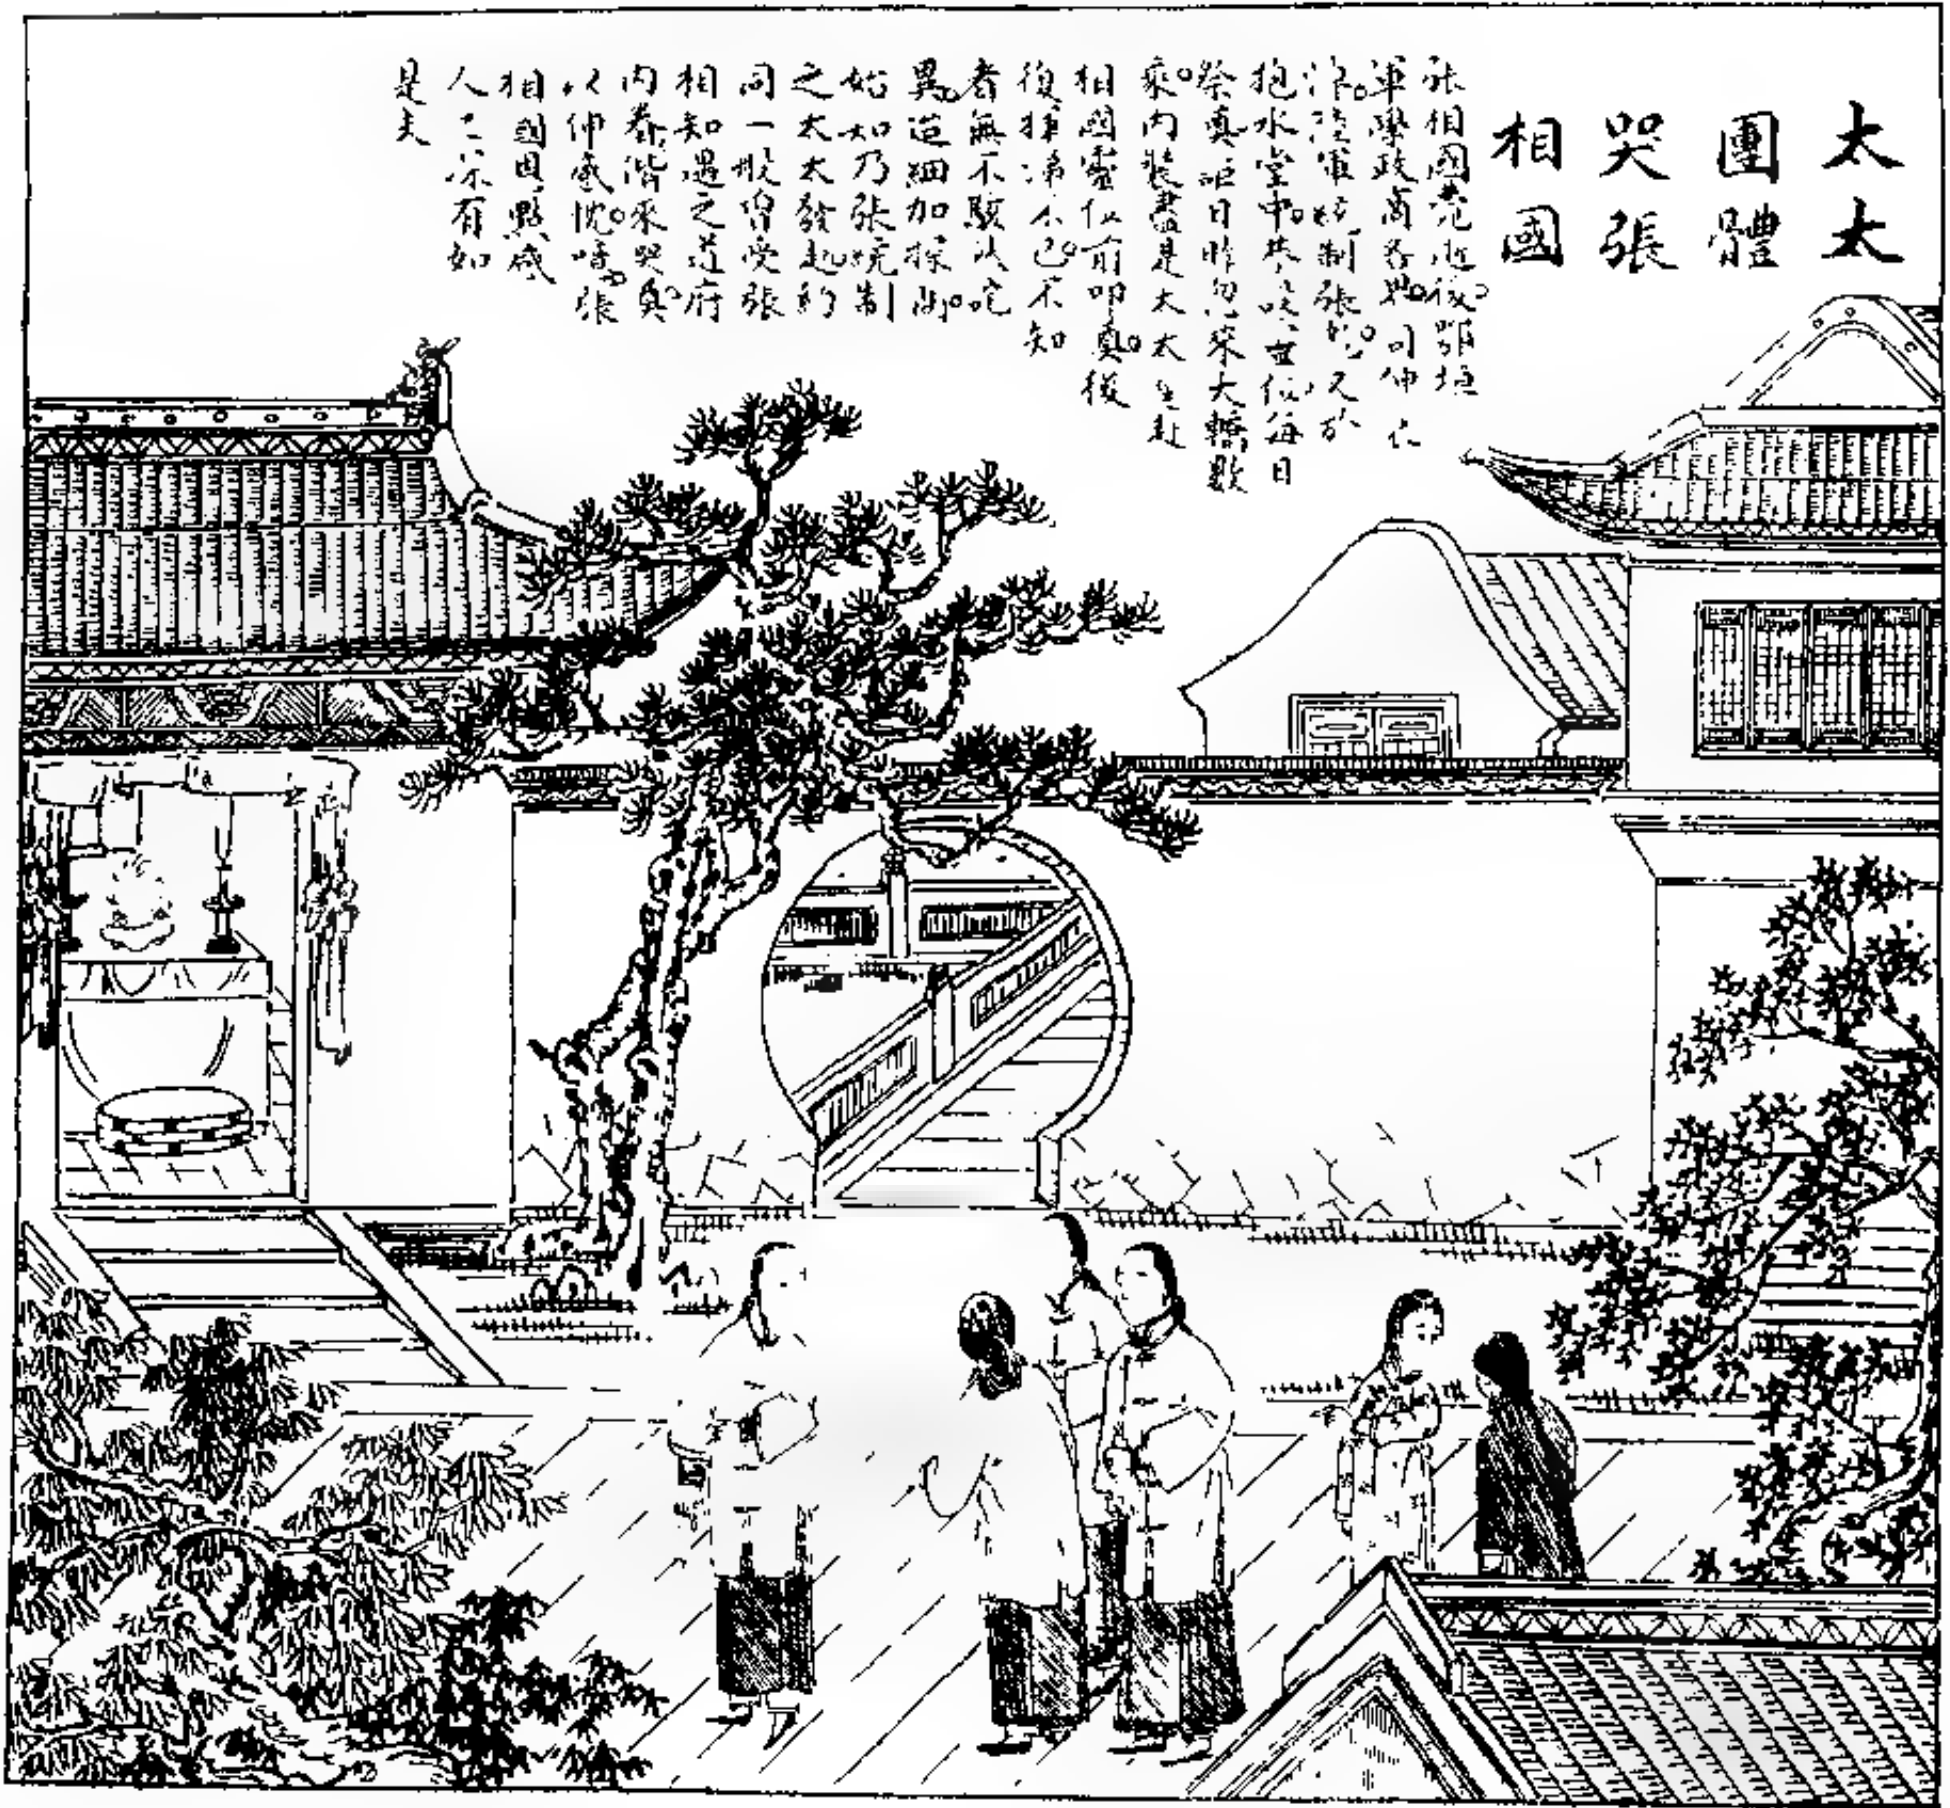 太太
團體
哭張
相國
張相國薨逝後鄂垣
軍學政商各界同伸
陸軍統制張 又於
抱冰堂中共設靈位每日
祭奠詎日昨忽來大轎數
乘內裝盡是太太 赴
相國靈位前叩奠後
復揮涕不已不知
者無不駭以咤
異迨細加探聞
始知乃張統制
之太太發起約
同一般曾受張
相知遇之道府
內眷偕來哭奠
以伸感忱噫張
相國恩點感
人之深有如
是夫